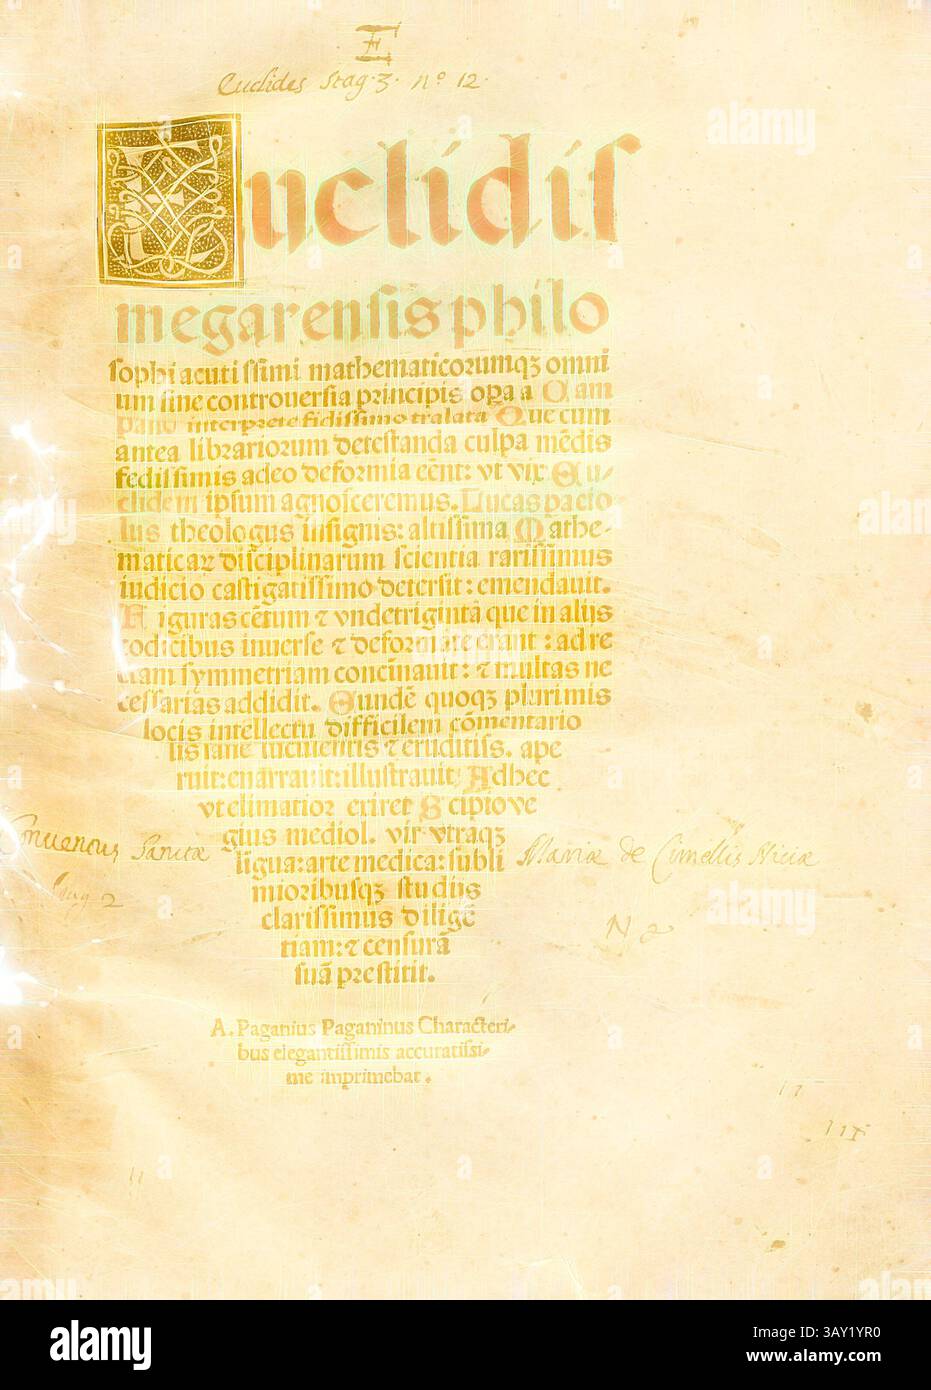 Euclides Stag. 3. nº 12.
Euclidiſ
megarenſis philo
ſophi acutiſſimi mathematicorumqꝫ omni
um ſine controuerſia principis oꝑa a Cam
pano interprete fidiſſimo tralata Que cum
antea librariorum deteſtanda culpa mẽdis
fediſſimis adeo deformia cẽnt: vt vix Eu-
clidem ipſum agnoſceremus. Lucas pacio-
lus theologus inſignis: altiſſima Mathe-
maticaꝝ diſciplinarum ſcientia rariſſimus
iudicio caſtigatiſſimo deterſit: emendauit.
Figuras cẽtum ⁊ vndetrigintã que in alijs
codicibus inuerſe ⁊ deformate erant: ad re
ctam ſymmetriam concĩnauit: ⁊ multas ne
ceſſarias addidit. Eundẽ quoqꝫ plurimis
locis intellectu difficilem cõmentario
lis ſane luculentis ⁊ eruditiſſ. ape
ruit: enarrauit: illuſtrauit Adhec
vt elimatior exiret Scipio ve
gius mediol. vir vtraqꝫ
lingua: arte medica: ſubli
mioribuſqꝫ ſtudiis
clariſſimus diligẽ
tiam: ⁊ cenſurã
ſuã preſtitit.
Conuentus Sanctæ Mariæ de Nicia
A. Paganius Paganinus Characteri-
bus elegantiſſimis accuratiſſi-
me imprimebat.
alamy
alamy
Image ID: 3AY1YR0
www.alamy.com